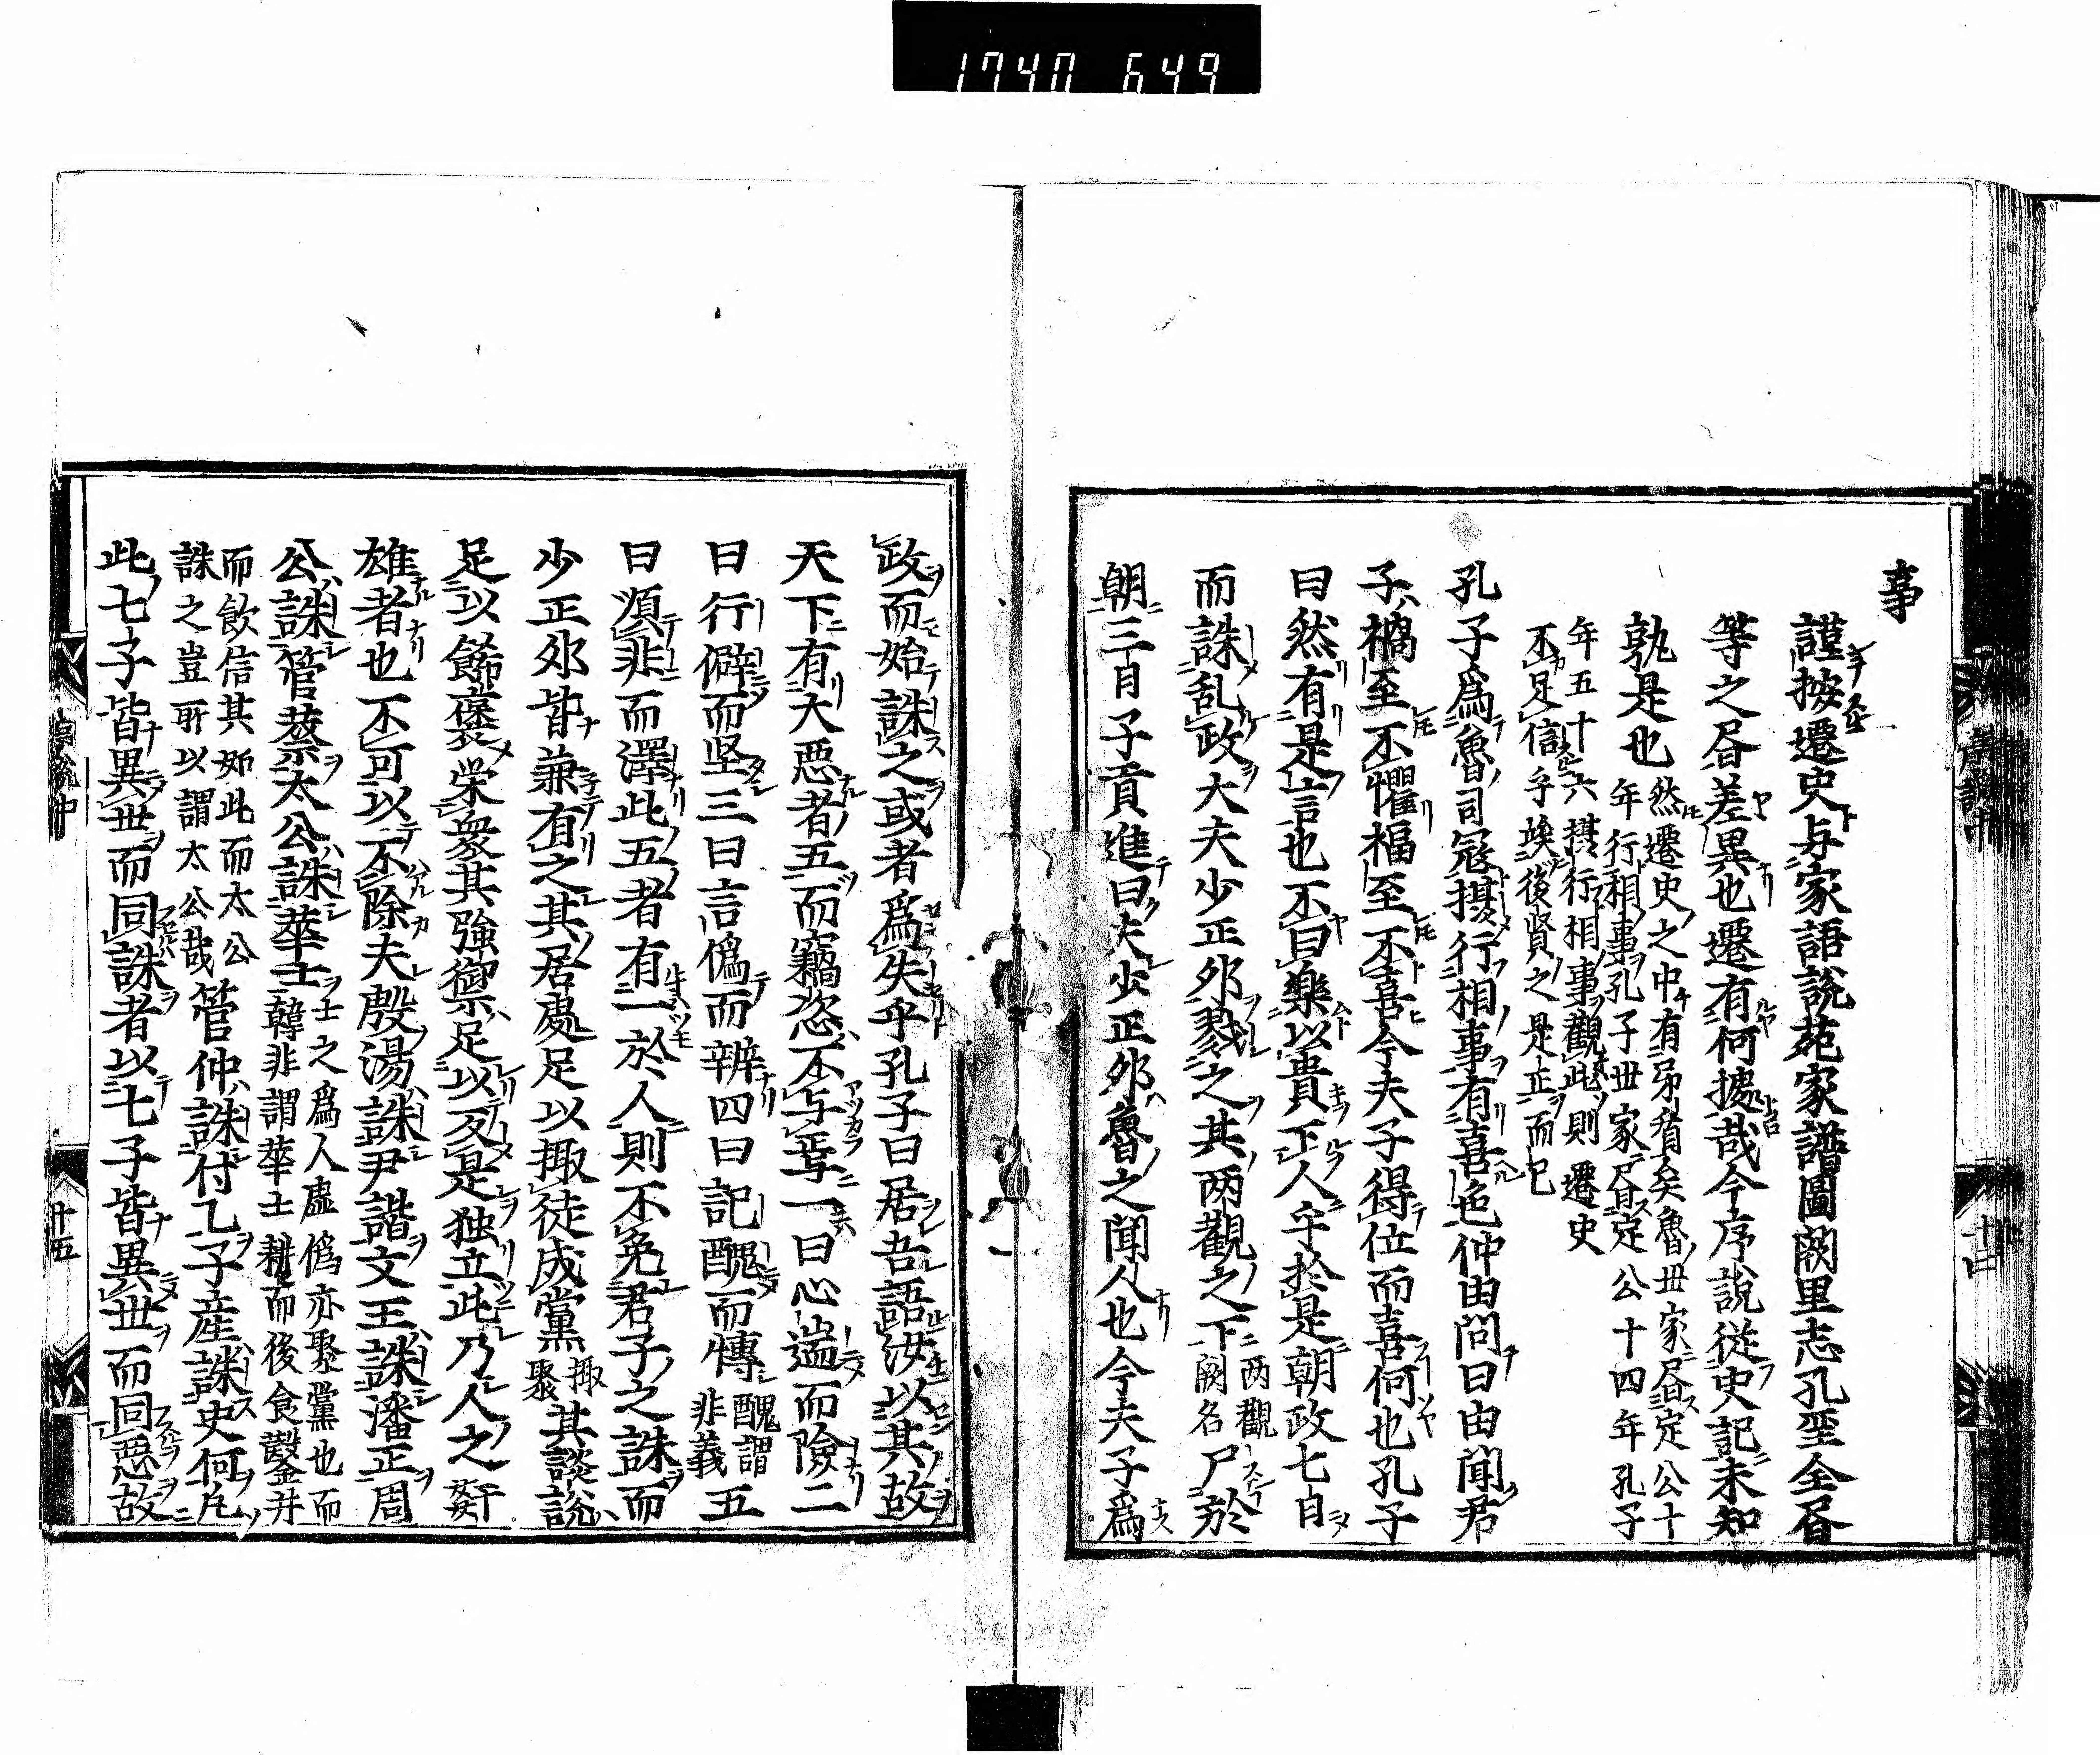 1740 649
事
謹按遷史与家語說苑家譜圖闕里志孔聖全昏
等之昏差異也遷有何據哉今序說從史記未知
孰是也
然遷史之中有弟有矣魯世家昏定公十
年行相事孔子世家昏定公十四年孔子
年五十六攝行相事觀此則遷史
不足信乎竢後賢之是正而已
孔子爲魯司寇攝行相事有喜色仲由問曰由聞君
子禍至不懼福至不喜今夫子得位而喜何也孔子
曰然有是言也不曰樂以貴下人乎於是朝政七日
而誅乱政大夫少正夘戮之其两觀之下
两觀
闕名
尸於
朝三日子貢進曰夫少正夘魯之聞人也今夫子爲
十四
政而始誅之或者爲失乎孔子曰居吾語汝以其故
天下有大惡者五而竊恣不与焉一曰心逆而險二
曰行僻而坚三曰言僞而辨四曰記醜而愽
醜謂
非義
五
曰順非而澤此五者有一於人則不免君子之誅而
少正夘皆兼有之其居處足以掫徒成黨
掫
聚
其談說
足以餙褒栄衆其強禦足以反是独立此乃人之姧
雄者也不可以不除夫殷湯誅尹諧文王誅潘正周
公誅管蔡太公誅華士
士之爲人虚僞亦聚黨也而
韓非謂華士耕而後食鑿井
而飲信其如此而太公
誅之豈所以謂太公哉
管仲誅付乙子産誅史何凢
此七子皆異世而同誅者以七子皆異世而同惡故
序說中
十五